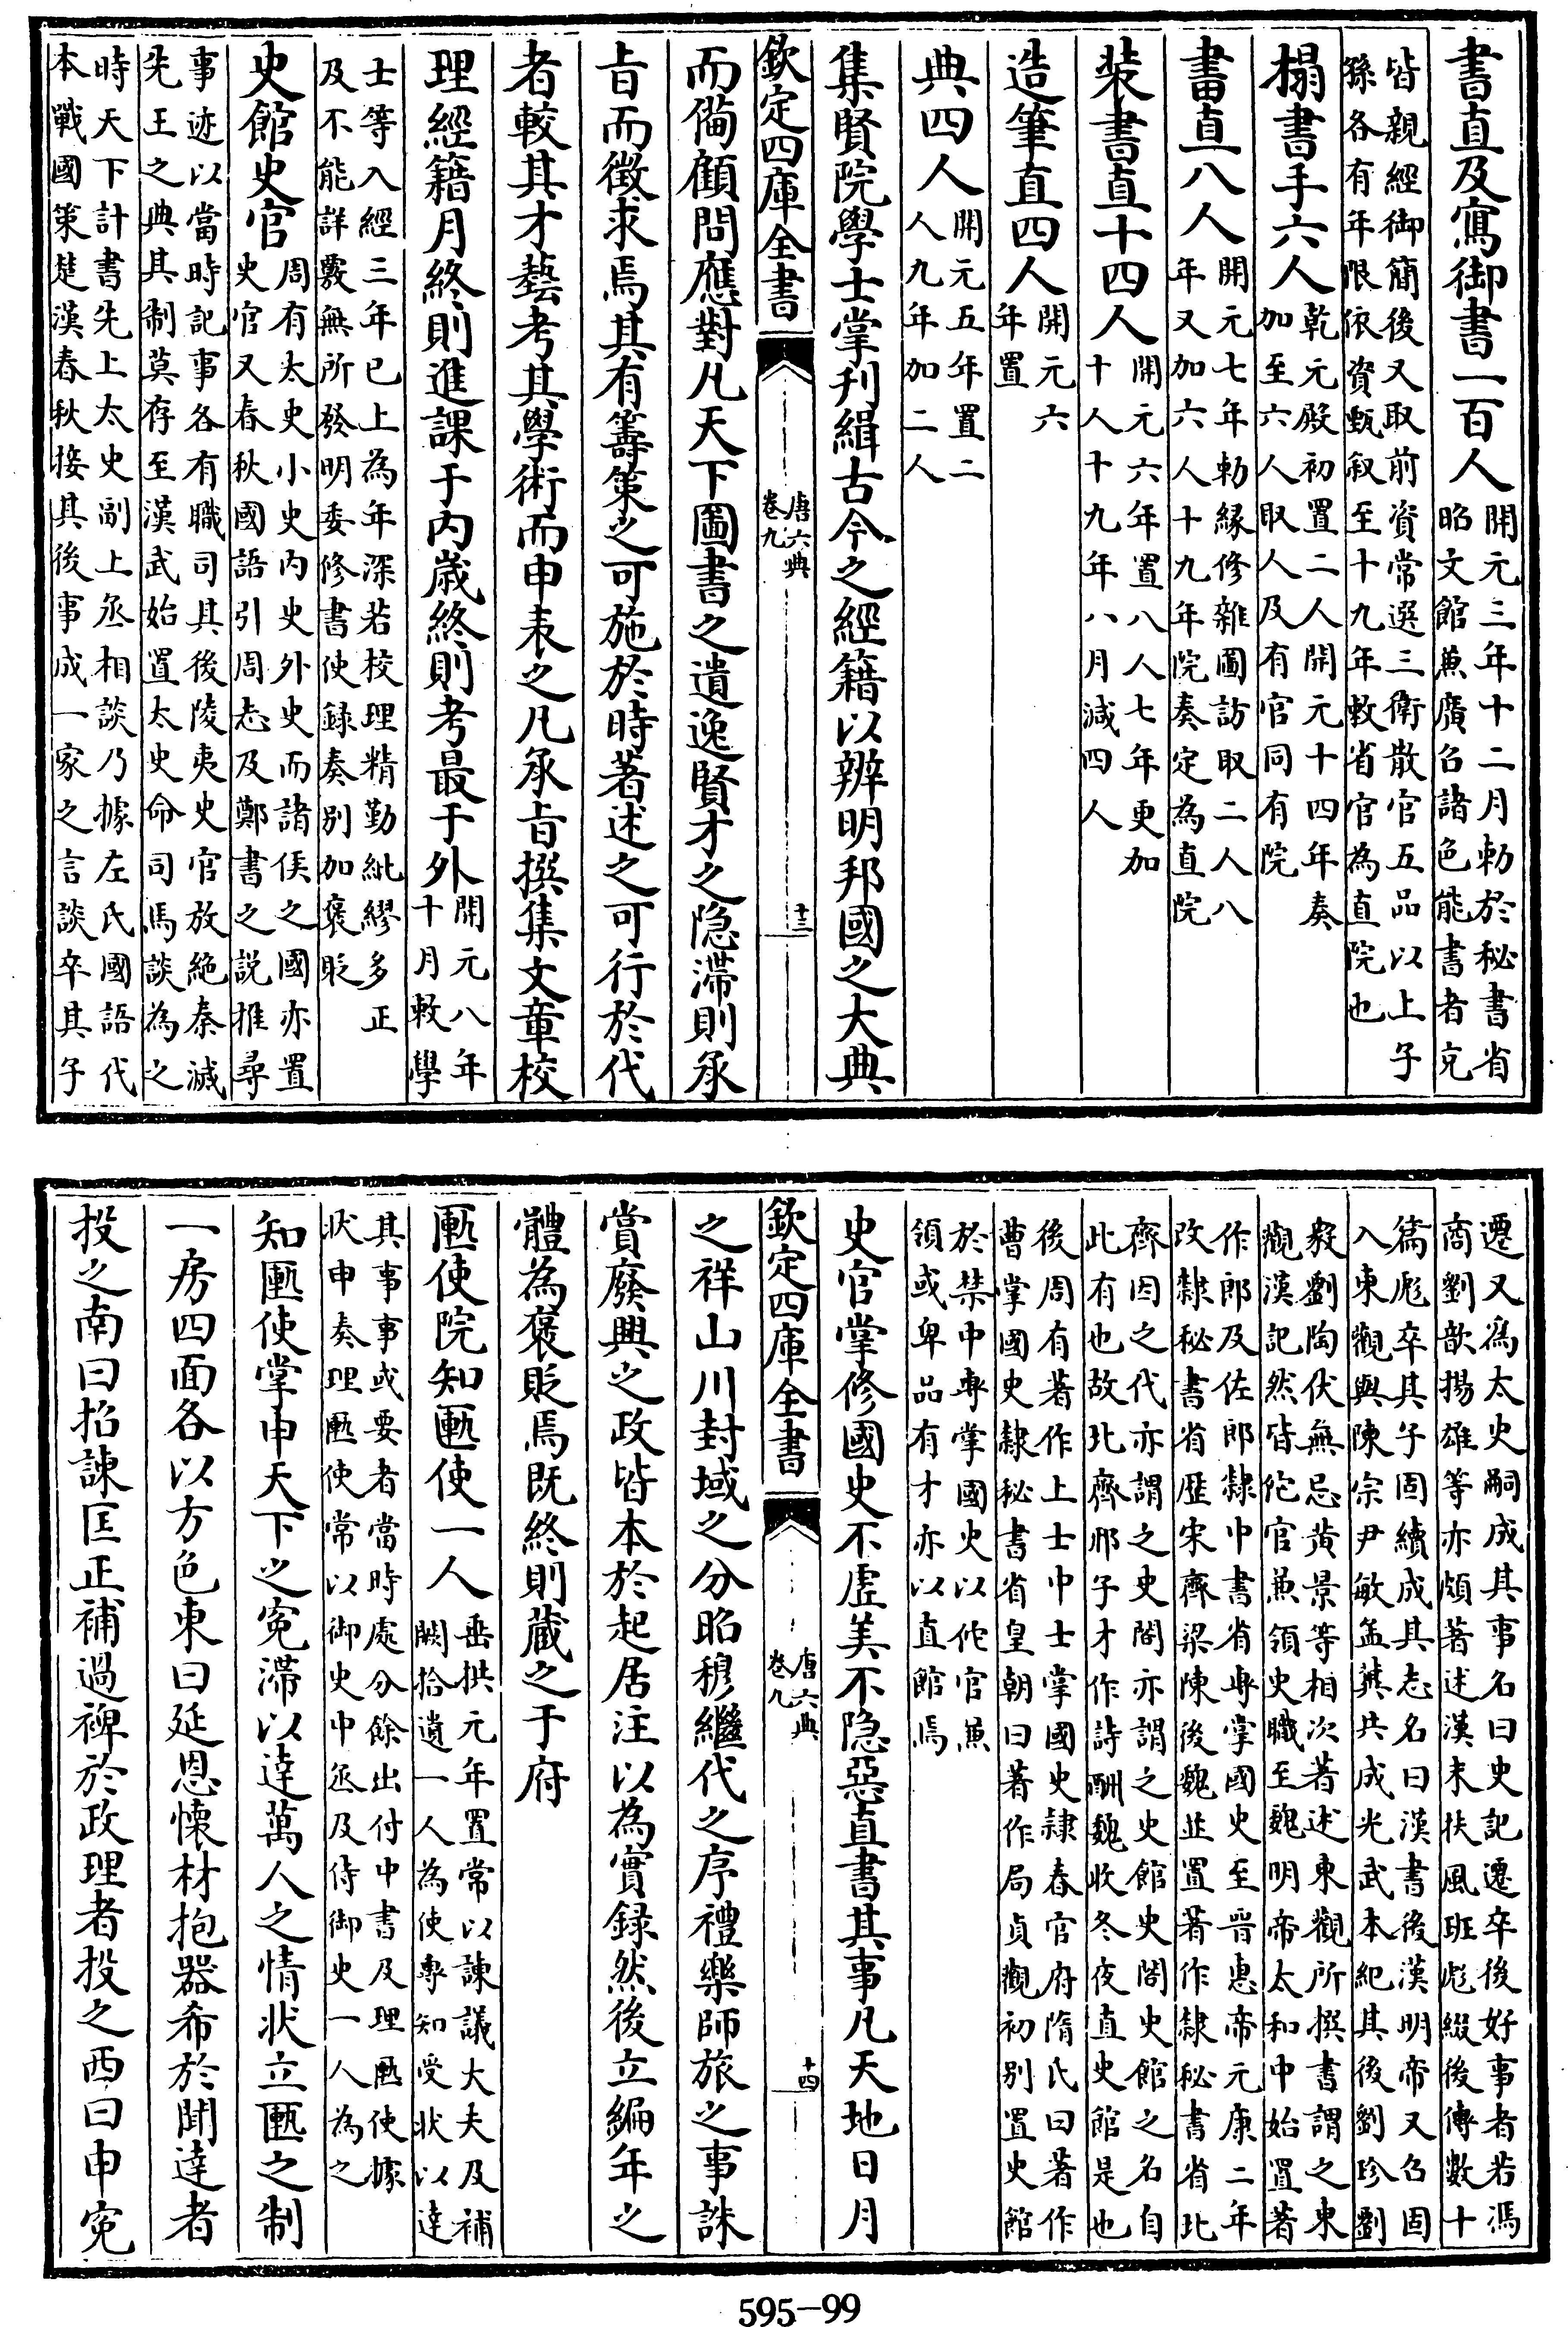 書直及寫御書一百人開元三年十二月勅於秘書省
昭文館兼廣召諸色能書者充
皆親經御簡後又取前資常選三衛散官五品以上子
孫各有年限依資甄叙至十九年敕省官為直院也
榻書手六人乾元殿初置二人開元十四年奏
加至六人取人及有官同有院
畫直八人開元七年勅緣修雜圖訪取二人八
年又加六人十九年院奏定為直院
装書直十四人開元六年置八人七年更加
十人十九年八月減四人
造筆直四人開元六
年置
典四人開元五年置二
人九年加二人
集賢院學士掌刋緝古今之經籍以辨明邦國之大典
欽定四庫全書
唐六典
卷九
十三
而備顧問應對凡天下圖書之遺逸賢才之隠滯則承
旨而徵求焉其有籌策之可施於時著述之可行於代
者較其才藝考其學術而申表之凡承旨撰集文章校
理經籍月終則進課于内歲終則考最于外開元八年
十月敕學
士等入經三年已上為年深若校理精勤紕繆多正
及不能詳覈無所發明委修書使録奏别加褒貶
史館史官周有太史小史内史外史而諸侯之國亦置
史官又春秋國語引周志及鄭書之説推尋
事迹以當時記事各有職司其後陵夷史官放絶秦滅
先王之典其制莫存至漢武始置太史命司馬談為之
時天下計書先上太史副上丞相談乃據左氏國語代
本戰國策楚漢春秋接其後事成一家之言談卒其子
遷又為太史嗣成其事名曰史記遷卒後好事者若馮
商劉歆揚雄等亦頗著述漢末扶風班彪綴後傳數十
篇彪卒其子固續成其志名曰漢書後漢明帝又召固
入東觀與陳宗尹敏孟兾共成光武本紀其後劉珍劉
毅劉陶伏無忌黄景等相次著述東觀所撰書謂之東
觀漢記然皆佗官兼領史職至魏明帝太和中始置著
作郎及佐郎隸中書省專掌國史至晉惠帝元康二年
改隸秘書省歴宋齊梁陳後魏並置著作隸秘書省北
齊因之代亦謂之史閣亦謂之史館史閣史館之名自
此有也故北齊邢子才作詩酬魏收冬夜直史館是也
後周有著作上士中士掌國史隸春官府隋氏曰著作
曹掌國史隸秘書省皇朝曰著作局貞觀初别置史館
於禁中專掌國史以佗官兼
領或卑品有才亦以直館焉
史官掌修國史不虚美不隠惡直書其事凡天地日月
欽定四庫全書
唐六典
卷九
十四
之祥山川封域之分昭穆繼代之序禮樂師旅之事誅
賞廢興之政皆本於起居注以為實録然後立編年之
體為褒貶焉既終則蔵之于府
匭使院知匭使一人垂拱元年置常以諫議大夫及補
闕拾遺一人為使專知受狀以達
其事事或要者當時處分餘出付中書及理匭使據
狀申奏理匭使常以御史中丞及侍御史一人為之
知匭使掌申天下之寃滯以達萬人之情狀立匭之制
一房四面各以方色東曰延恩懷材抱器希於聞達者
投之南曰招諫匡正補過裨於政理者投之西曰申寃
595-99